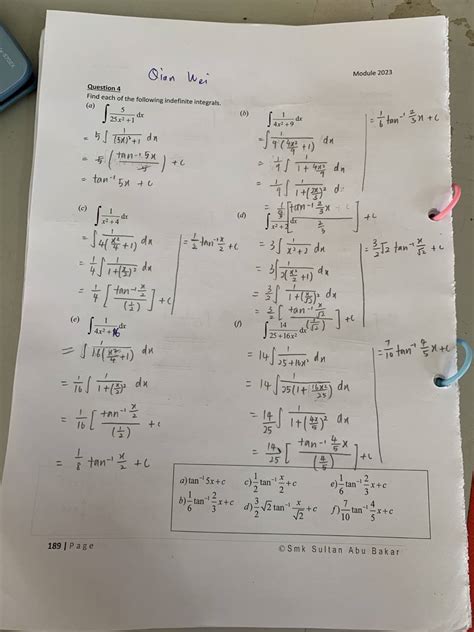 Qian Wei
Module 2023
Question 4
Find each of the following indefinite integrals.
(a) ∫ 5/(25x²+1) dx
= 5 ∫ 1/((5x)²+1) dx
= 5 (tan⁻¹ 5x / 5) + c
= tan⁻¹ 5x + c
(b) ∫ 1/(4x²+9) dx
= ∫ 1/(9(4x²/9 +1)) dx
= 1/9 ∫ 1/(1+ 4x²/9) dx
= 1/9 ∫ 1/(1+(2x/3)²) d
= 1/9 [tan⁻¹ 2/3 x / (2/3)] + c
= 1/6 tan⁻¹ 2/3 x + c
(c) ∫ 1/(x²+4) dx
= ∫ 1/(4(x²/4 +1)) dx
= 1/4 ∫ 1/(1+(x/2)²) dx
= 1/4 [tan⁻¹ x/2 / (1/2)] + c
= 1/2 tan⁻¹ x/2 + c
(d) ∫ 3/(x²+2) dx
= 3 ∫ 1/(x²+2) dx
= 3 ∫ 1/(2(x²/2 +1)) dx
= 3/2 ∫ 1/(1+(x/√2)²) dx
= 3/2 [tan⁻¹ x/√2 / (1/√2)] + c
= 3/2 √2 tan⁻¹ x/√2 + c
(e) ∫ 1/(4x²+16) dx
= ∫ 1/(16(x²/4 +1)) dx
= 1/16 ∫ 1/(1+(x/2)²) dx
= 1/16 [tan⁻¹ x/2 / (1/2)] + c
= 1/8 tan⁻¹ x/2 + c
(f) ∫ 14/(25+16x²) dx
= 14 ∫ 1/(25+16x²) dx
= 14 ∫ 1/(25(1+ 16x²/25)) dx
= 14/25 ∫ 1/(1+(4x/5)²) dx
= 14/25 [tan⁻¹ 4/5 x / (4/5)] + c
= 7/10 tan⁻¹ 4/5 x + c
a) tan⁻¹ 5x + c c) 1/2 tan⁻¹ x/2 + c e) 1/6 tan⁻¹ 2/3 x + c
b) 1/6 tan⁻¹ 2/3 x + c d) 3/2 √2 tan⁻¹ x/√2 + c f) 7/10 tan⁻¹ 4/5 x + c
189 | Page
©Smk Sultan Abu Bakar